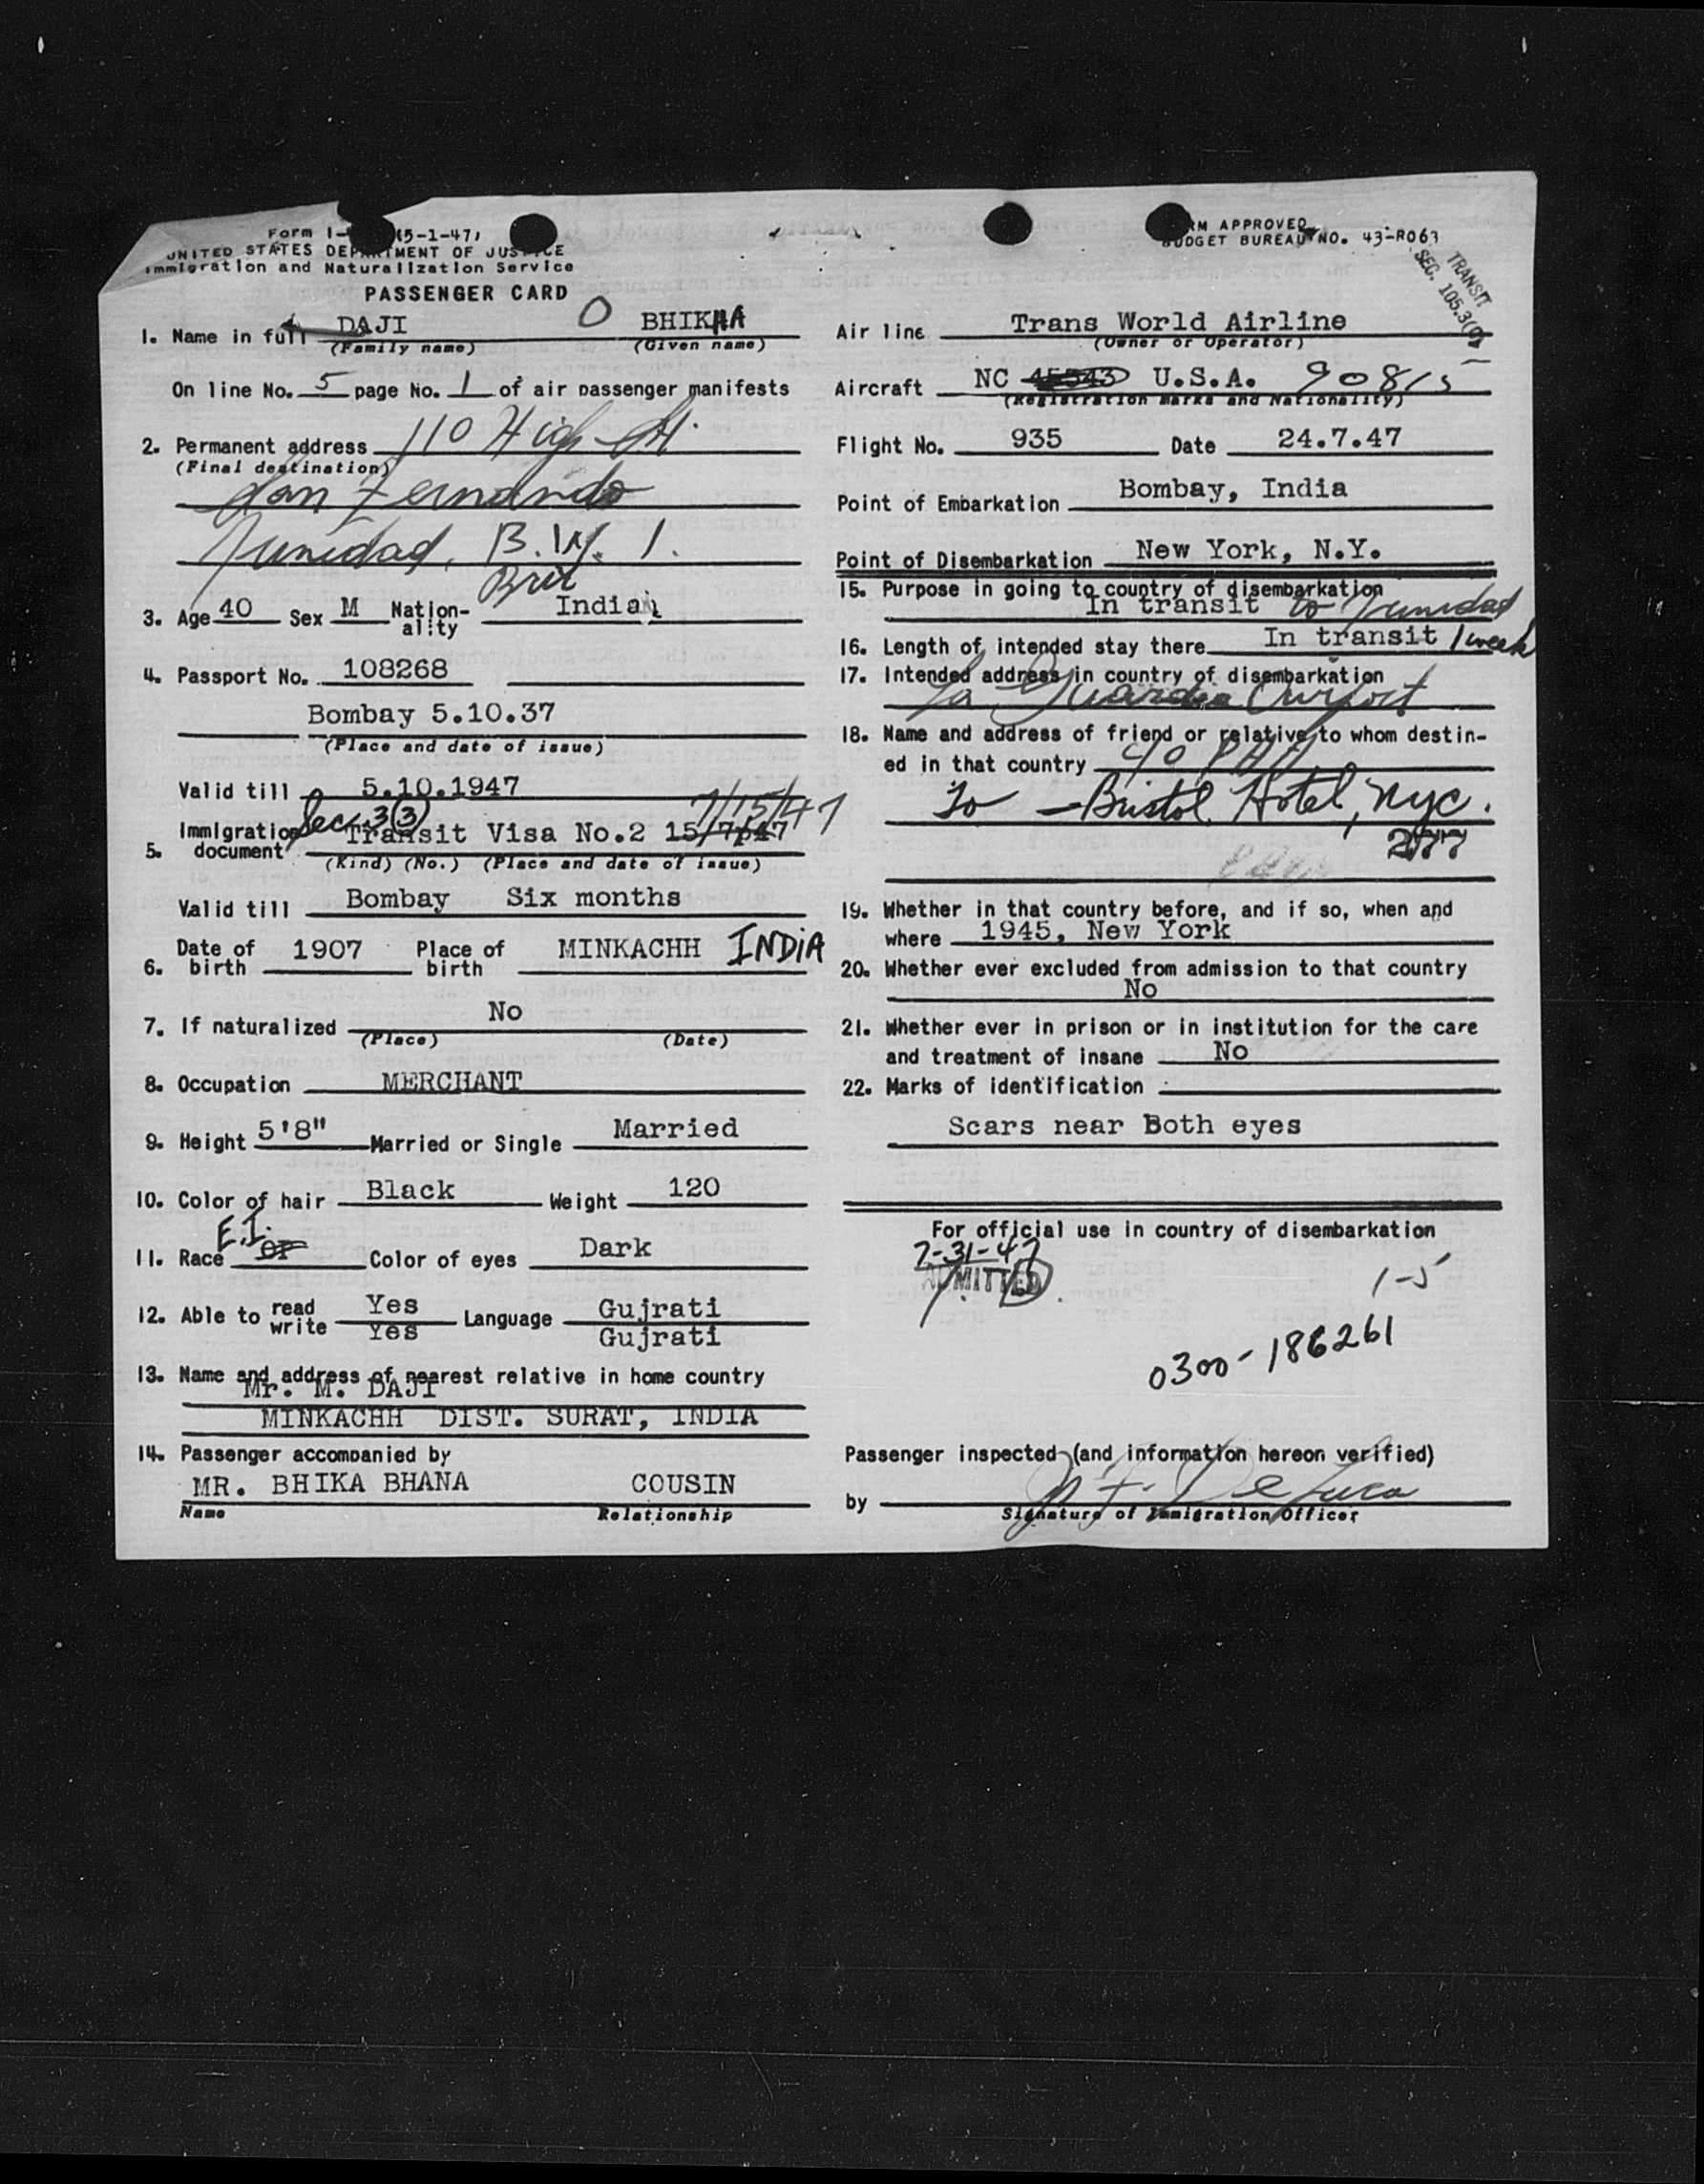 Form I- (5-1-47)
UNITED STATES DEPARTMENT OF JUSTICE
Immigration and Naturalization Service
PASSENGER CARD
1. Name in full DAJI O BHIKHA
(Family name) (Given name)
On line No. 5 page No. 1 of air passenger manifests
2. Permanent address 110 High St.
(Final destination)
San Fernando
Trinidad, B.W.I.
Brit
3. Age 40 Sex M Nation-ality Indian
4. Passport No. 108268
Bombay 5.10.37
(Place and date of issue)
Valid till 5.10.1947
Sec. 3(3) 7/15/47
5. Immigration document Transit Visa No.2 15/7/47
(Kind) (No.) (Place and date of issue)
Valid till Bombay Six months
6. Date of birth 1907 Place of birth MINKACHH INDIA
7. If naturalized No
(Place) (Date)
8. Occupation MERCHANT
9. Height 5'8" Married or Single Married
10. Color of hair Black Weight 120
E.I.
11. Race Color of eyes Dark
12. Able to read Yes Language Gujrati
write Yes Gujrati
13. Name and address of nearest relative in home country
Mr. M. DAJI
MINKACHH DIST. SURAT, INDIA
14. Passenger accompanied by
MR. BHIKA BHANA COUSIN
Name Relationship
FORM APPROVED
BUDGET BUREAU NO. 43-R063
TRANSIT
SEC. 105.3
Air line Trans World Airline
(Owner or Operator)
Aircraft NC 45543 U.S.A. 90815
(Registration Marks and Nationality)
Flight No. 935 Date 24.7.47
Point of Embarkation Bombay, India
Point of Disembarkation New York, N.Y.
15. Purpose in going to country of disembarkation
In transit to Trinidad
16. Length of intended stay there In transit 1 week
17. Intended address in country of disembarkation
La Guardia Airport
18. Name and address of friend or relative to whom destin-
ed in that country c/o PAA
To - Bristol Hotel, Nyc.
19. Whether in that country before, and if so, when and
where 1945, New York
20. Whether ever excluded from admission to that country
No
21. Whether ever in prison or in institution for the care
and treatment of insane No
22. Marks of identification
Scars near Both eyes
For official use in country of disembarkation
7-31-47
ADMITTED
1-5
0300-186261
Passenger inspected (and information hereon verified)
by
Signature of Immigration Officer